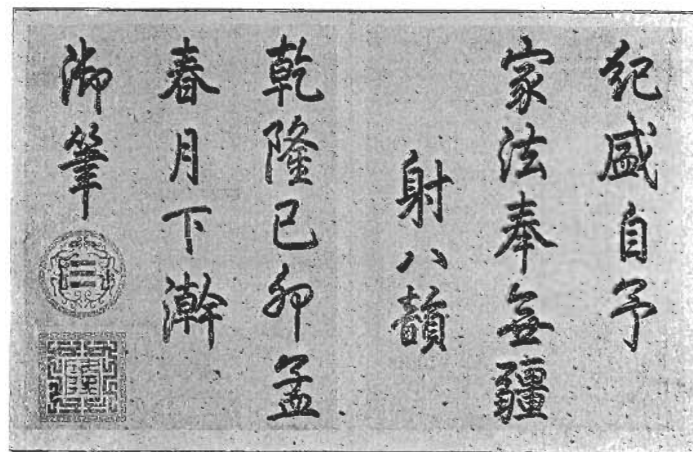 紀盛自予
家法奉無疆
射八韻
乾隆己卯孟
春月下澣
御筆